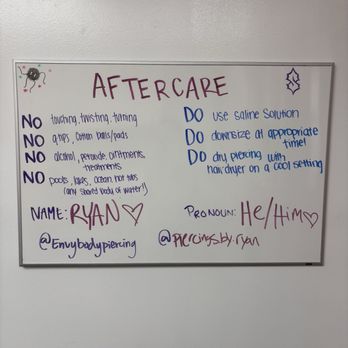 AFTERCARE
NO touching, twisting, turning
NO q tips, cotton balls/pads
NO alcohol, peroxide, ointments,
treatments
NO pools, lakes, ocean, hot tubs
(any shared body of water!)
DO use saline solution
DO downsize at appropriate
time!
DO dry piercing with
hairdryer on a cool setting
NAME: RYAN
PRONOUN: He/Him
@Envybodypiercing
@piercings.by.ryan